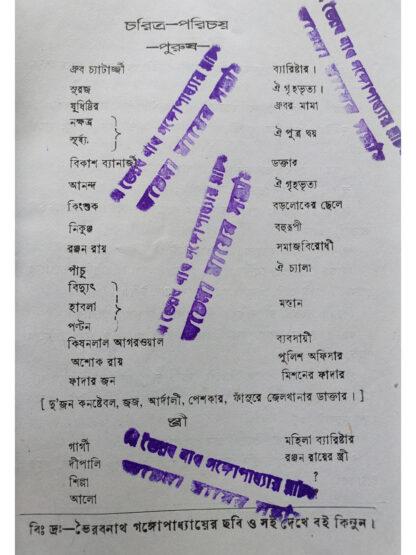 চরিত্র-পরিচয়
—পুরুষ—
ধ্রুব চ্যাটার্জ্জী ব্যারিষ্টার।
সুরজ ঐ গৃহভৃত্য
যুধিষ্ঠির ধ্রুবর মামা
নক্ষত্র
সূর্য্য } ঐ পুত্র দ্বয়
বিকাশ ব্যানার্জী ডক্তার
আনন্দ ঐ গৃহভৃত্য
কিংশুক বড়লোকের ছেলে
নিকুঞ্জ বহুরূপী
রঞ্জন রায় সমাজবিরোধী
পাঁচু ঐ চ্যালা
বিদ্যুৎ
হাবলা } মস্তান
পল্টন
কিষনলাল আগরওয়াল ব্যবসায়ী
অশোক রায় পুলিশ অফিসার
ফাদার জন মিশনের ফাদার
[ দু'জন কনষ্টেবল, জজ, আর্দালী, পেশকার, ফাঁসুরে জেলখানার ডাক্তার। ]
স্ত্রী
গার্গী মহিলা ব্যারিষ্টার
দীপালি রঞ্জন রায়ের স্ত্রী
শিল্পা ?
আলো
বিঃ দ্রঃ—ভৈরবনাথ গঙ্গোপাধ্যায়ের ছবি ও সই দেখে বই কিনুন।
ভৈরব নাথ গঙ্গোপাধ্যায়